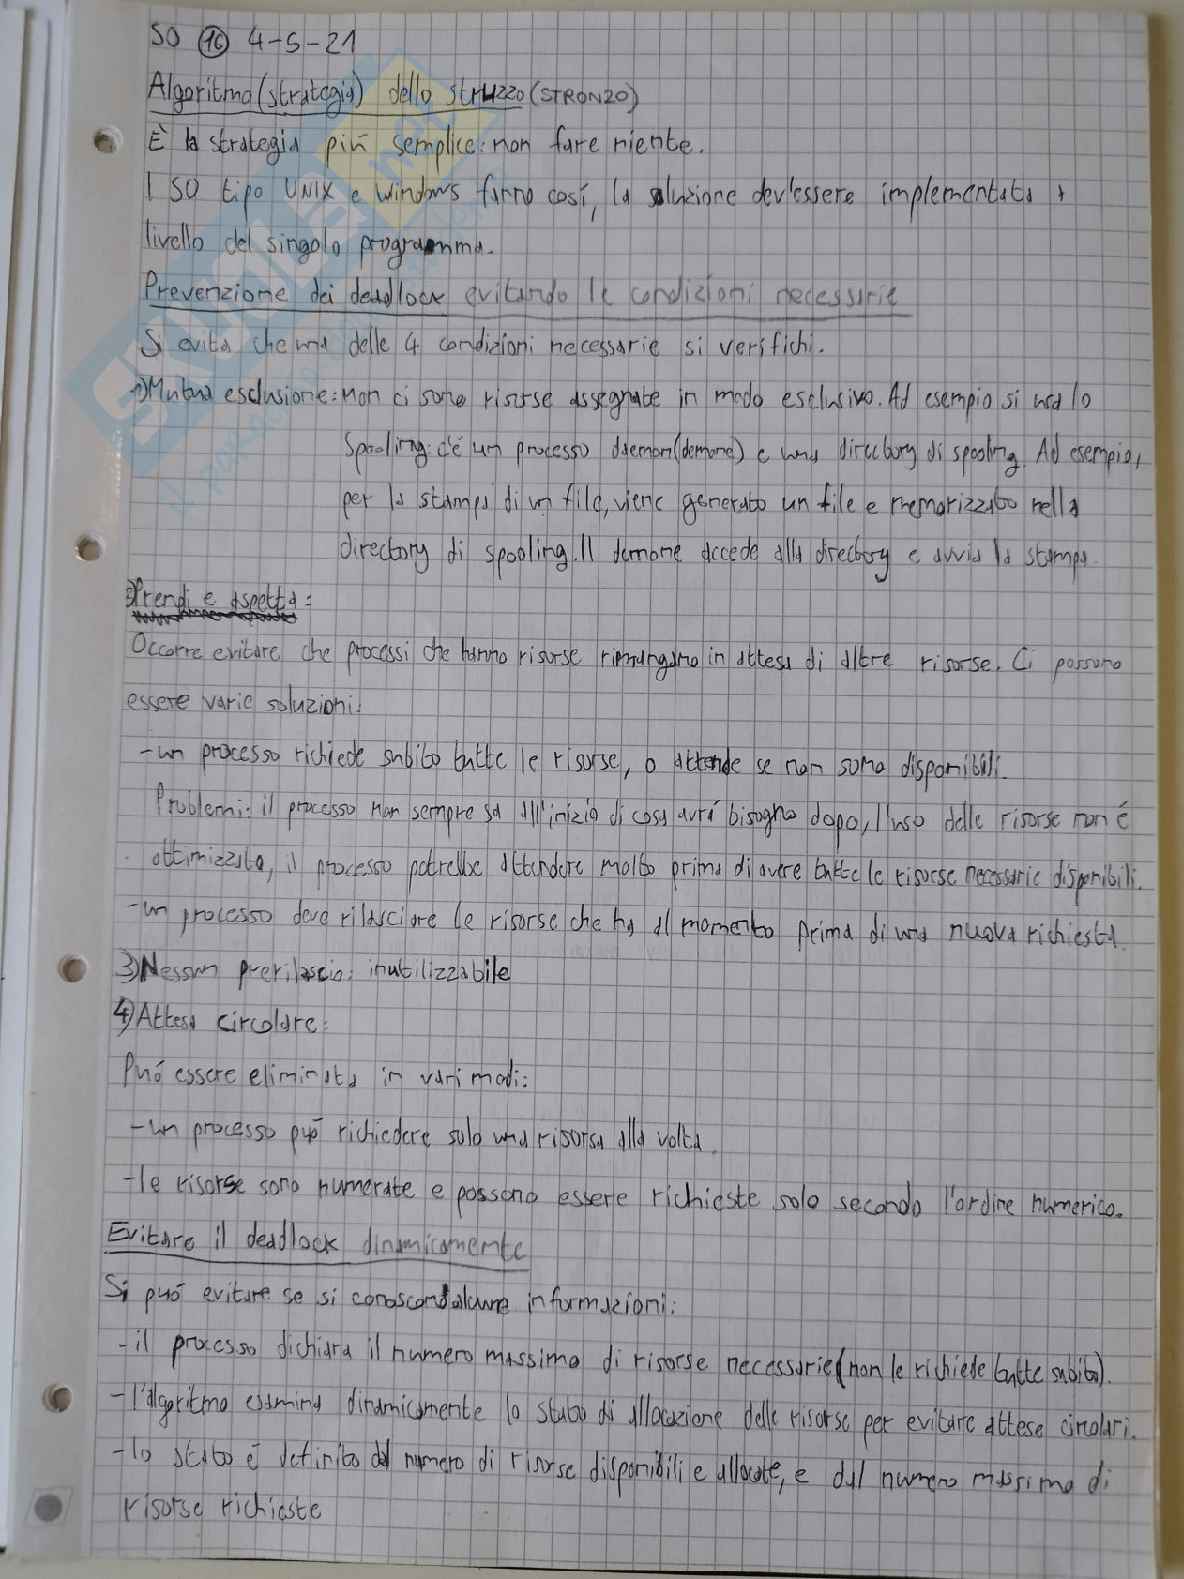 SO 16 4-5-21
Algoritmo (strategia) dello struzzo (STRONZO)
È la strategia più semplice: non fare niente.
I SO tipo UNIX e Windows fanno così, la soluzione dev'essere implementata a
livello del singolo programma.
Prevenzione dei deadlock evitando le condizioni necessarie
Si evita che una delle 4 condizioni necessarie si verifichi.
1) Mutua esclusione: Non ci sono risorse assegnate in modo esclusivo. Ad esempio si usa lo
Spooling: c'é un processo daemon (demone) e una directory di spooling. Ad esempio,
per la stampa di un file, viene generato un file e memorizzato nella
directory di spooling. Il demone accede alla directory e avvia la stampa.
2) Prendi e aspetta:
Occorre evitare che processi che hanno risorse rimangano in attesa di altre risorse. Ci possono
essere varie soluzioni:
-un processo richiede subito tutte le risorse, o attende se non sono disponibili.
Problemi: il processo non sempre sa all'inizio di cosa avrá bisogno dopo, l'uso delle risorse non é
ottimizzato, il processo potrebbe attendere molto prima di avere tutte le risorse necessarie disponibili.
-un processo deve rilasciare le risorse che ha al momento prima di una nuova richiesta.
3) Nessun prerilascio: inutilizzabile
4) Attesa circolare:
Puó essere eliminata in vari modi:
-un processo puó richiedere solo una risorsa alla volta.
-le risorse sono numerate e possono essere richieste solo secondo l'ordine numerico.
Evitare il deadlock dinamicamente
Si puó evitare se si conoscono alcune informazioni:
-il processo dichiara il numero massimo di risorse necessarie (non le richiede tutte subito).
-l'algoritmo esamina dinamicamente lo stato di allocazione delle risorse per evitare attese circolari.
-lo stato é definito dal numero di risorse disponibili e allocate, e dal numero massimo di
risorse richieste